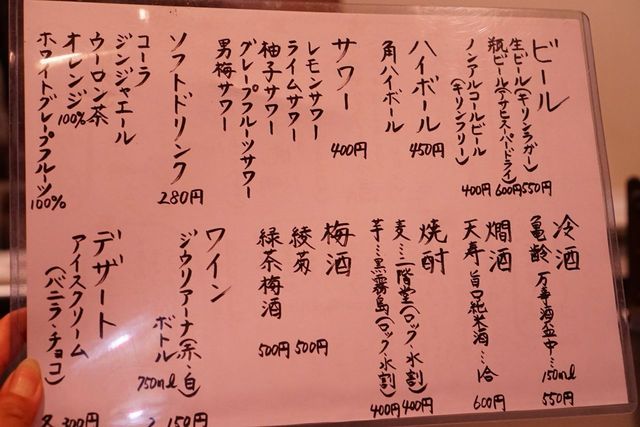 ビール
生ビール(キリンラガー) 550円
瓶ビール(アサヒスーパードライ) 600円
ノンアルコールビール(キリンフリー) 400円
ハイボール 450円
角ハイボール
サワー 400円
レモンサワー
ライムサワー
柚子サワー
グレープフルーツサワー
男梅サワー
ソフトドリンク 280円
コーラ
ジンジャエール
ウーロン茶
オレンジ100%
ホワイトグレープフルーツ100%
冷酒
亀齢 万年酒盃中…150ml 550円
燗酒
天寿 旨口純米酒…1合 600円
焼酎
麦…二階堂(ロック、水割) 400円
芋…黒霧島(ロック、水割) 400円
梅酒
綾菊 500円
緑茶梅酒 500円
ワイン
ジウリアーナ(赤・白)
ボトル 750ml
デザート
アイスクリーム
(バニラ・チョコ)
300円